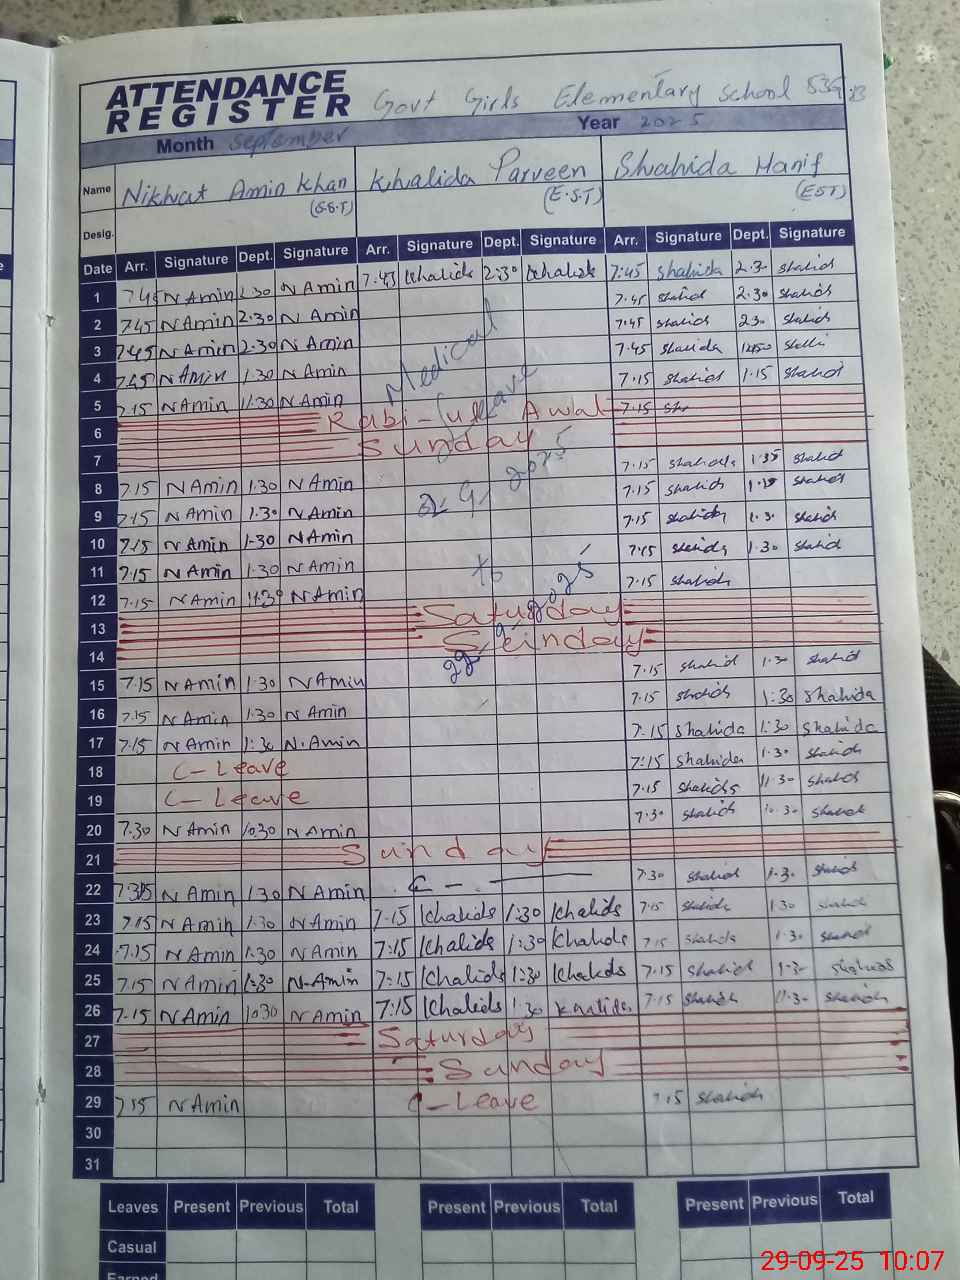 ATTENDANCE
REGISTER
Govt Girls Elementary School
Month September Year 2025
Name Nikhat Amin Khan Khalida Parveen Shahida Hanif
Desig. (S.S.T) (E.S.T) (EST)
Date Arr. Signature Dept. Signature Arr. Signature Dept. Signature Arr. Signature Dept. Signature
1 N Amin N Amin 7:43 Khalids 2:30 7:45 Shahida 2.30 Shahid
2 7.45 N Amin 2.30 N Amin 7.45 Shahid 2.30 Shahids
3 7.45 N Amin 2.30 N Amin 7.45 Shahids 2.30 Shahids
4 N Amin 1.30 N Amin Medical 7.45 Shahida
5 7.15 N Amin 1:30 N Amin Leave 7.15 Shahid 1.15 Shahid
6 Rabi-ul Awal 7.15
7 Sunday
8 7.15 N Amin 1:30 N Amin 7.15 1.35 Shahid
9 7.15 N Amin 1.30 N Amin 7.15 Shahids Shahid
10 7.15 N Amin 1.30 N Amin 7.15 Shahids 1.30 Shahids
11 7.15 N Amin 1.30 N Amin to 7.15 Shahids 1.30 Shahid
12 7.15 N Amin N Amin 7.15 Shahids
13 Saturday
14 Sunday
15 7.15 N Amin 1:30 N Amin 7.15 Shahid 1.30 Shahid
16 7.15 N Amin 1:30 N Amin 7.15 Shahids 1:30 Shahida
17 7.15 N Amin 1:30 N.Amin 7.15 Shahida 1:30 Shahida
18 C-Leave 7:15 Shahida 1.30 Shahids
19 C-Leave 7.15 Shahids 11.30 Shahids
20 7.30 N Amin 10:30 N Amin 7.30 Shahids 10.30 Shahids
21 Sunday
22 N Amin 1:30 N Amin C - 7.30 Shahid 1.30 Shahids
23 7.15 N Amin 1.30 N Amin 7.15 Khalids 1:30 Khalids 7.15 Shahida 1.30 Shahid
24 7.15 N Amin 1.30 N Amin 7:15 Khalids 1:30 Khalids 7.15 Shahids 1.30 Shahid
25 7.15 N Amin 1:30 N-Amin 7:15 Khalids 1:30 Khalids 7.15 Shahid 1.30 Shahids
26 7.15 N Amin 10:30 N Amin 7:15 Khalids 1:30 Khalida 7.15 Shahids 11.30 Shahids
27 Saturday
28 Sunday
29 7.15 N Amin C-Leave 7.15 Shahids
30
31
Leaves Present Previous Total Present Previous Total Present Previous Total
Casual
Earned
29-09-25 10:07